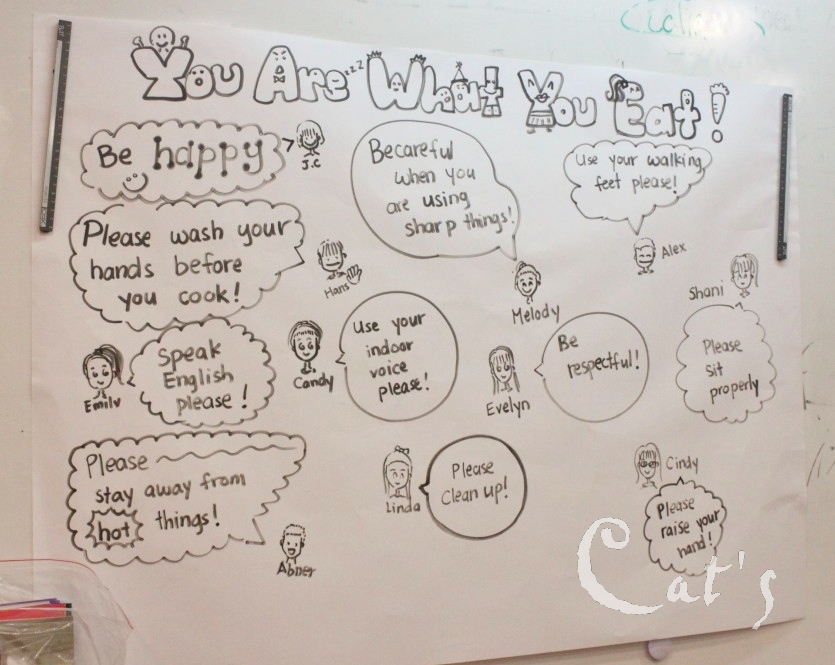 You Are What You Eat!
Be happy
J.C
Becareful
when you
are using
sharp things!
Melody
Use your walking
feet please!
Alex
Please wash your
hands before
you cook!
Hans
Shani
Please
sit
properly
Emily
Speak
English
please!
Candy
Use your
indoor
voice
please!
Evelyn
Be
respectful!
Please
stay away from
hot things!
Abner
Linda
Please
Clean up!
Cindy
Please
raise your
hand!
Cat's